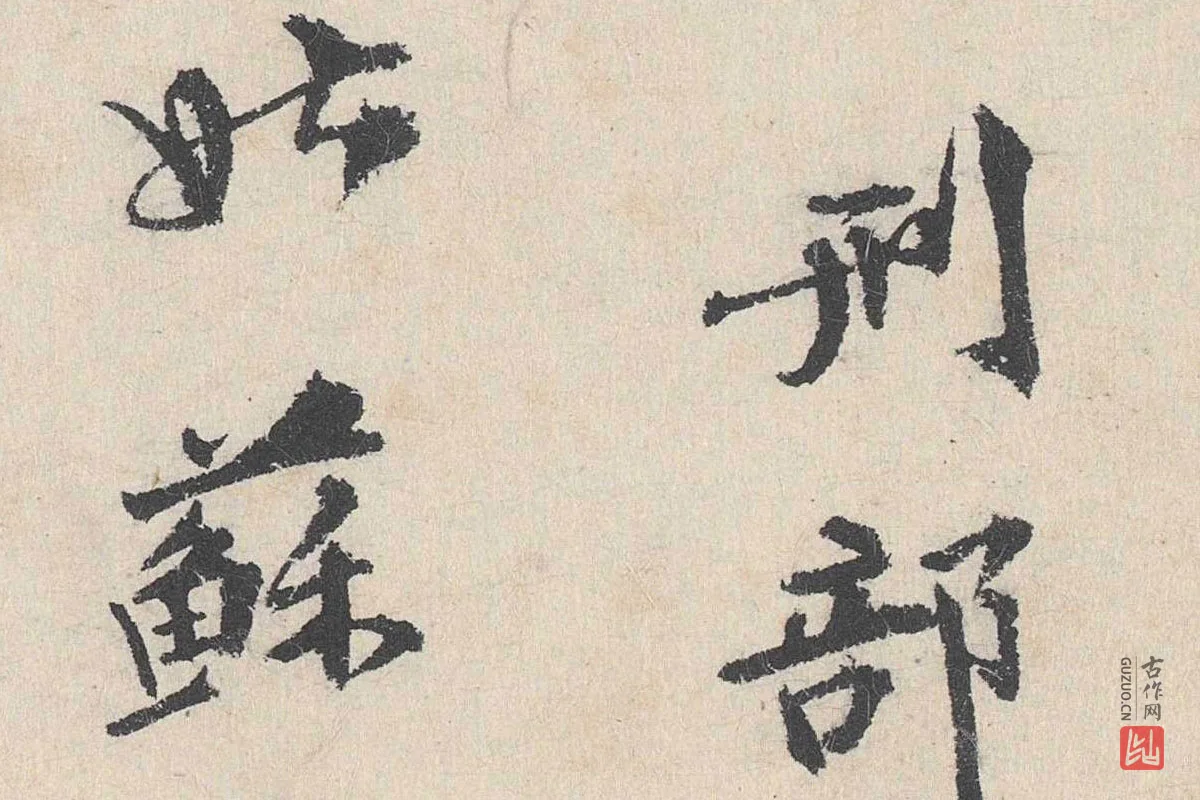 刑部
姑蘇
古作网
GUZUO.CN